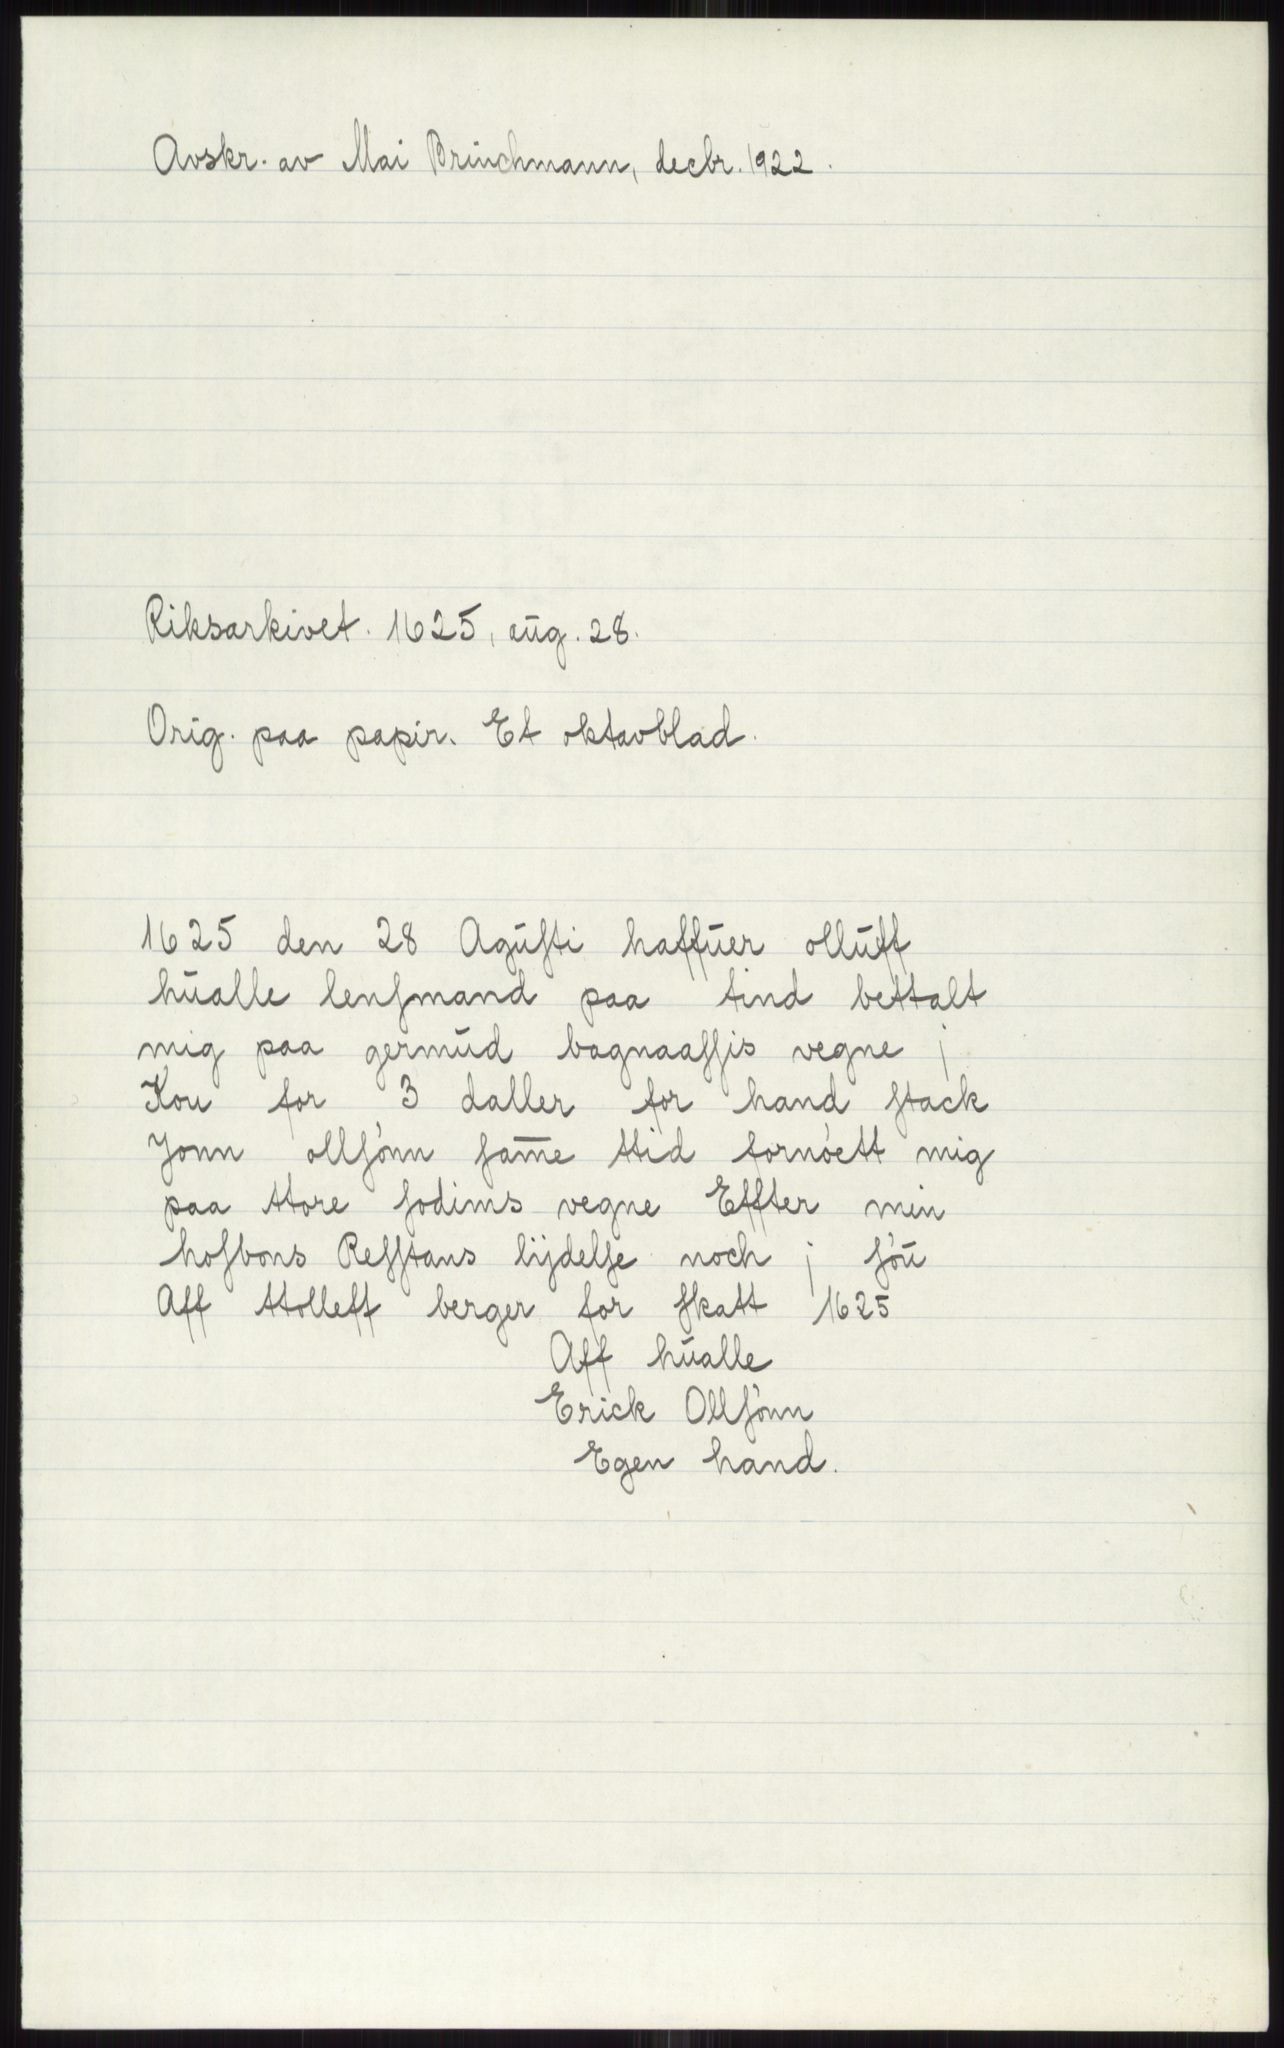 Avskr. av Mai Brünchmann, decbr. 1922.
Riksarkivet. 1625, aūg. 28.
Orig. paa papir. Et oktavblad.
1625 den 28 Agūſti haffūer ollūff
hūalle lenſmand paa tind bettalt
mig paa germūd bagnaaſſis vegne j
Kou for 3 daller for hand ſtack
Jonn ollſónn ſam̄e ttid fornóett mig
paa ttore ſodims vegne Effter min
hoſbons Reſſtans lijdelſe noch j ſóū
Aff ttolleff berger for ſkatt 1625
Aff hūalle
Erick Ollſónn
Egen hand.